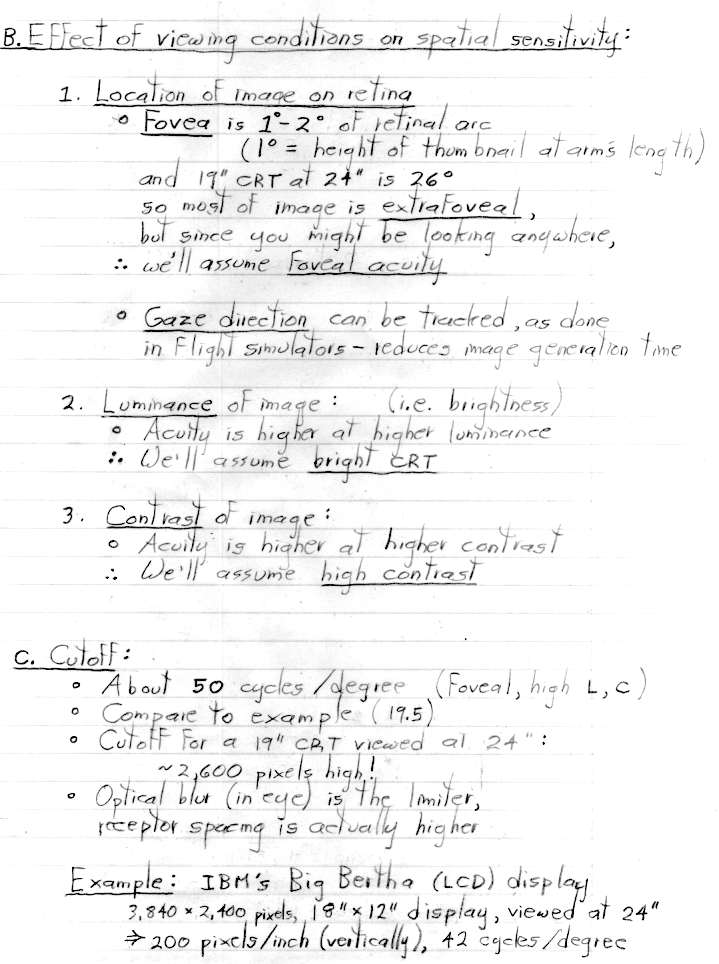 B. Effect of viewing conditions on spatial sensitivity:
1. Location of image on retina
• Fovea is 1°-2° of retinal arc
(1° = height of thumbnail at arm's length)
and 19" CRT at 24" is 26°
so most of image is extrafoveal,
but since you might be looking anywhere,
∴ we'll assume foveal acuity
• Gaze direction can be tracked, as done
in flight simulators - reduces image generation time
2. Luminance of image: (i.e. brightness)
• Acuity is higher at higher luminance
∴ We'll assume bright CRT
3. Contrast of image:
• Acuity is higher at higher contrast
∴ We'll assume high contrast
C. Cutoff:
• About 50 cycles/degree (Foveal, high L, C)
• Compare to example (19.5)
• Cutoff for a 19" CRT viewed at 24":
~2,600 pixels high!
• Optical blur (in eye) is the limiter,
receptor spacing is actually higher
Example: IBM's Big Bertha (LCD) display
3,840 × 2,400 pixels, 18" × 12" display, viewed at 24"
⇒ 200 pixels/inch (vertically), 42 cycles/degree